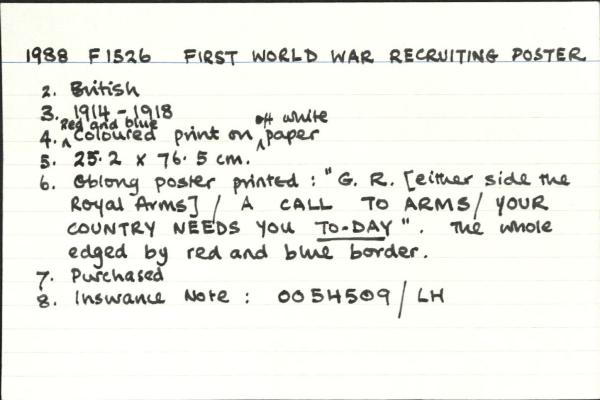 1988 F1526 FIRST WORLD WAR RECRUITING POSTER
2. British
3. 1914-1918
4. Red and blue coloured print on off white paper
5. 25.2 x 76.5 cm.
6. Oblong poster printed: "G. R. [either side the
Royal Arms] / A CALL TO ARMS / YOUR
COUNTRY NEEDS YOU TO-DAY". The whole
edged by red and blue border.
7. Purchased
8. Insurance Note: 0054509 / LH